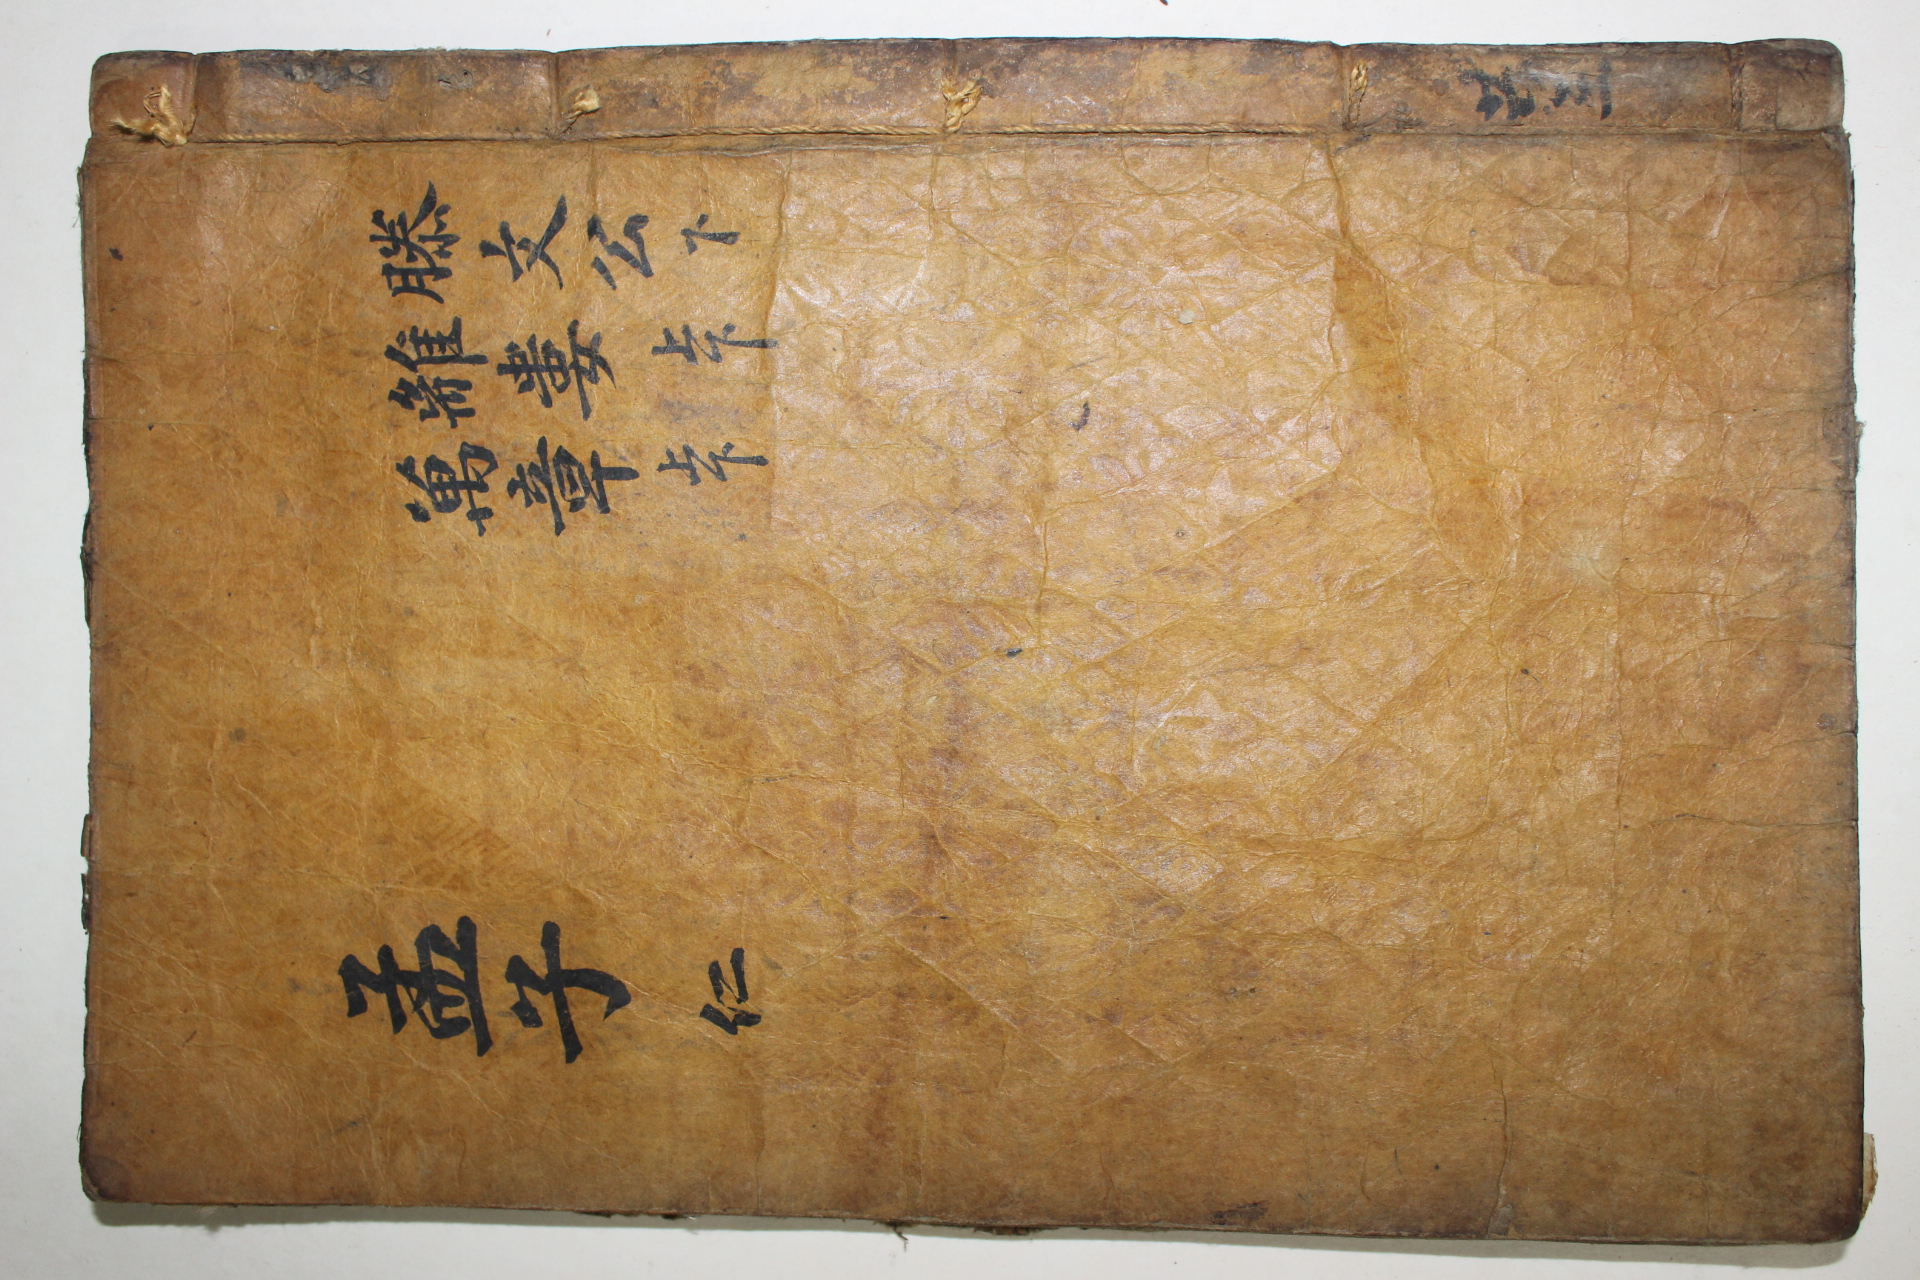 共三
滕文公下
離婁上下
萬章上下
孟子 仁